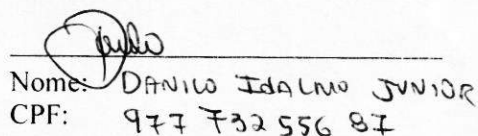 Nome: DANILO IDALMO JUNIOR
CPF: 977 732 556 87